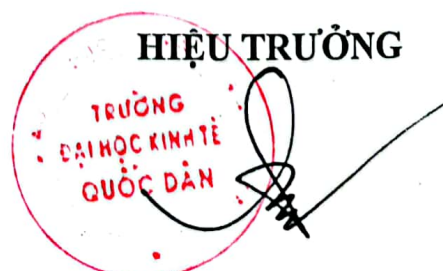 HIỆU TRƯỞNG
TRƯỜNG
ĐẠI HỌC KINH TẾ
QUỐC DÂN